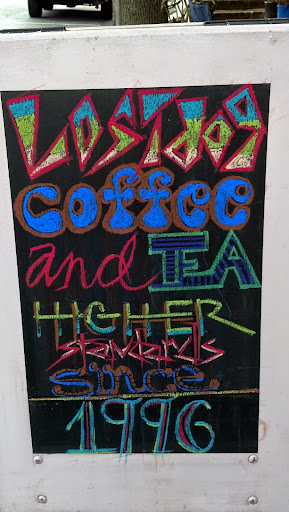 LOSTdog
coffee
and TEA
HIGHER
standards
since
1996